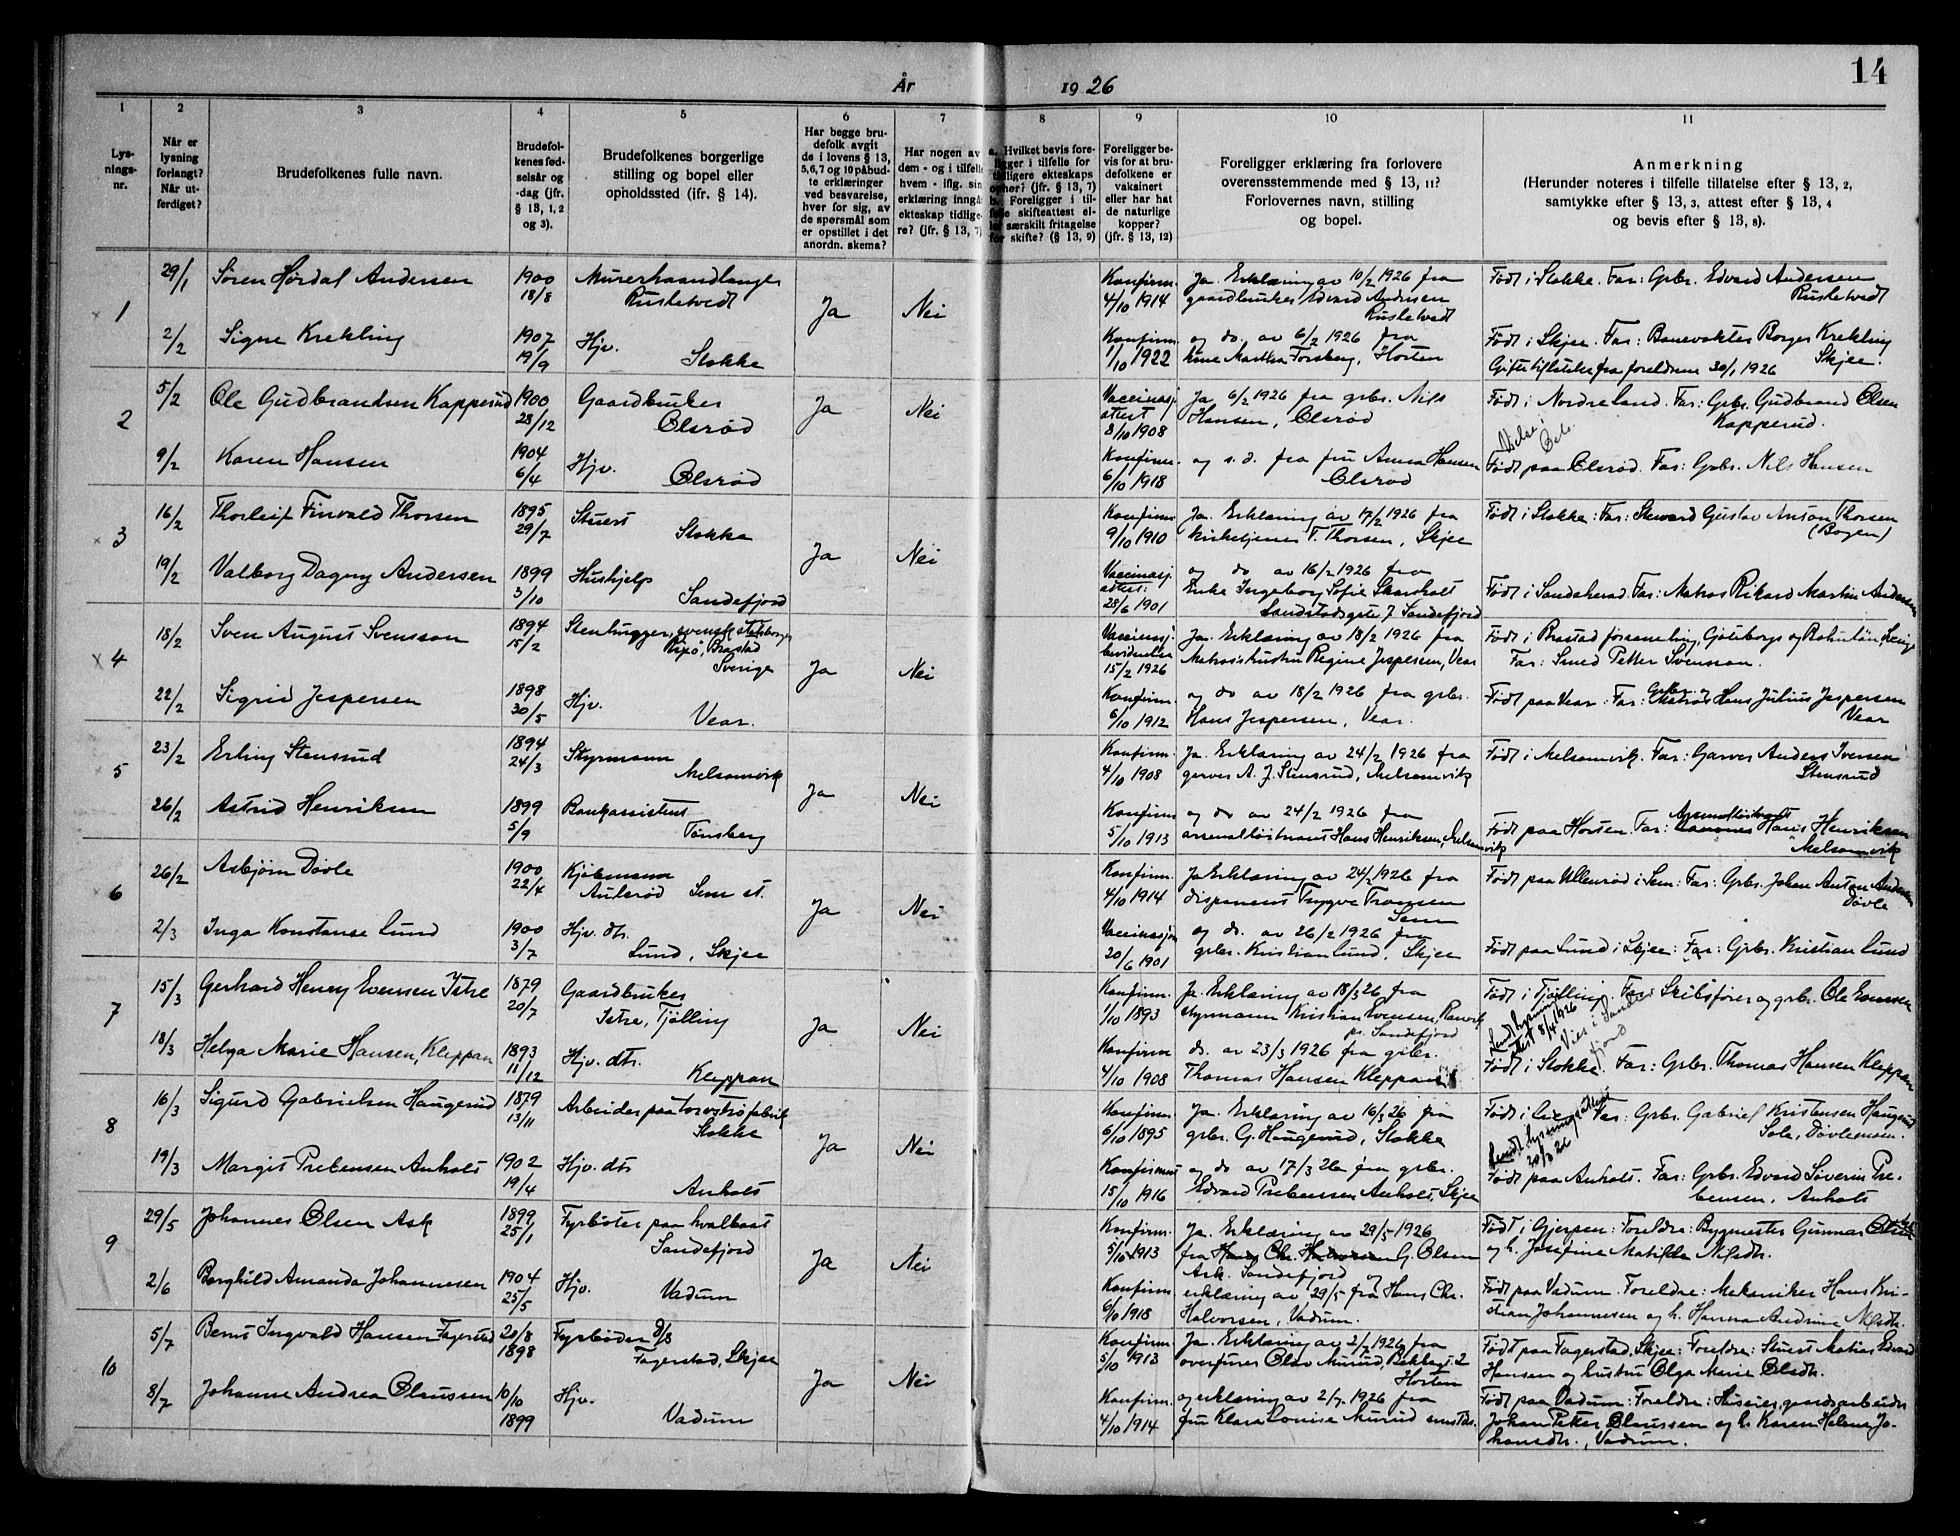 14
År 1926
1 2 3 4 5 6 7 8 9 10 11
Lys-
nings-
nr.
Når er
lysning
forlangt?
Når ut-
ferdiget?
Brudefolkenes fulle navn.
Brudefol-
kenes fød-
selsår og
-dag (jfr.
§ 13, 1, 2
og 3).
Brudefolkenes borgerlige
stilling og bopel eller
opholdssted (ifr. § 14).
Har begge bru-
defolk avgit
de i lovens § 13,
5,6,7 og 10 påbud-
te erklæringer
ved besvarelse,
hver for sig, av
de spørsmål som
er opstillet i det
anordn. skema?
Har nogen av
dem - og i tilfelle
hvem - iflg. sin
erklæring inngå
ekteskap tidlige-
re? (jfr. § 13, 7)
a. Hvilket bevis fore-
ligger i tilfelle for
tidligere ekteskaps
ophør? (jfr. § 13, 7)
b. Foreligger i til-
felle skifteattest el-
ler særskilt fritagelse
for skifte? (§ 13, 9)
Foreligger be-
vis for at bru-
defolkene er
vaksinert
eller har hat
de naturlige
kopper?
(jfr. § 13, 12)
Foreligger erklæring fra forlovere
overensstemmende med § 13, 11?
Forlovernes navn, stilling
og bopel.
Anmerkning
(Herunder noteres i tilfelle tillatelse efter § 13, 2,
samtykke efter § 13, 3, attest efter § 13, 4
og bevis efter § 13, 8).
1
29/1 Søren Hørdal Andersen 1900 18/8 Murerhaandlanger Rustetvedt Ja Nei
Konfirm. 4/10 1914 Ja. Erklæring av 10/2 1926 fra
gaardbruker Edvard Andersen
Rustetvedt
Født i Stokke. Far: Grbr. Edvard Andersen
Rustetvedt
2/2 Signe Krekling 1907 19/9 Hjv. Stokke
Konfirm. 1/10 1922 og do. av 6/2 1926 fra
Martha Forsberg, Horten
Født i Skjee. Far: Banevokter Borger Krekling
Skjee.
fra foreldrene 30/1 1926
2
5/2 Ole Gudbrandsen Kapperud 1900 28/12 Gaardbruker Olsrød Ja Nei
Vaccinasj. attest 8/10 1908 Ja 6/2 1926 fra grbr. Nils
Hansen, Olsrød
Født i Nordre Land. Far: Grbr. Gudbrand Olsen
Kapperud.
9/2 Karen Hansen 1904 6/4 Hjv. Olsrød
Konfirm. 6/10 1918 og s.d. fra fru Anna Hansen
Olsrød
Født paa Olsrød. Far: Grbr. Nils Hansen
3
16/2 Thorleif Finvald Thorsen 1895 29/7 Stuert Stokke Ja Nei
Konfirm. 9/10 1910 Ja. Erklæring av 17/2 1926 fra
kirketjener T. Thorsen, Skjee
Født i Stokke: Far: Steward Gustav Anton Thorsen
(Bogen)
19/2 Valborg Dagny Andersen 1899 3/10 Hushjelp Sandefjord
Vaccinasj. attest: 28/6 1901 og do av 16/2 1926 fra
Enke Ingeborg Sofie Skarsholt
Landstadsgt. 7. Sandefjord
Født i Sandeherad. Far: Matros Rikard Martin Andersen
4
18/2 Sven August Svensson 1894 15/2 Stenhugger, svensk statsborger
Rixö, Brastad
Sverige Ja Nei
Vaccinasj. bevidnelse 15/2 1926 Ja. Erklæring av 18/2 1926 fra
Matroshustru Regine Jespersen, Vear
Født i Brastad forsamling, Göteborgs og Bohuslän, Sverige
Far: Smed Petter Svensson.
22/2 Sigrid Jespersen 1898 30/5 Hjv. Vear.
Konfirm. 6/10 1912 og do av 18/2 1926 fra grbr.
Hans Jespersen, Vear.
Født paa Vear. Far: Grbr. og Matros Hans Julius Jespersen
Vear
5
23/2 Erling Stensrud 1894 24/3 Styrmann Melsomvik Ja Nei
Konfirm. 4/10 1908 Ja. Erklæring av 24/2 1926 fra
garver A. J. Stensrud, Melsomvik
Født i Melsomvik. Far: Garver Anders Iversen
Stensrud
26/2 Astrid Henriksen 1899 5/9 Bankassistent Tønsberg
Konfirm. 5/10 1913 og do av 24/2 1926 fra
arsenalløitnant Hans Henriksen, Melsomvik
Født paa Horten Far: Arsenalløitnant Hans Henriksen
Melsomvik
6
26/2 Asbjørn Døvle 1900 22/4 Kjøbmann Aulerød Sem st. Ja Nei
Konfirm. 4/10 1914 Ja Erklæring av 24/2 1926 fra
disponent Trygve Tromsen
Sem
Født paa Ullenrød i Sem: Far: Grbr. Johan Anton Andersen
Døvle
2/3 Inga Konstanse Lund 1900 3/7 Hjv. dtr. Lund, Skjee
Vaccinasj. 20/6 1901 og do. av 26/2 1926 fra
grbr. Kristian Lund, Skjee
Født paa Lund i Skjee: Far: Grbr. Kristian Lund
7
15/3 Gerhard Henry Evensen Istre 1879 20/7 Gaardbruker Istre, Tjølling Ja Nei
Konfirm. 1/10 1893 Ja. Erklæring av 18/3 26 fra
styrmann Kristian Evensen, Ranvik
pr. Sandefjord
Født i Tjølling. Far Skibsfører og grbr. Ole Evensen
Sendt lysnings-
attest 8/4 1926
Vies i Sande-
fjord
18/3 Helga Marie Hansen, Kleppan 1893 11/12 Hjv. dtr. Kleppan
Konfirm 4/10 1908 do. av 23/3 1926 fra grbr.
Thomas Hansen Kleppan
Født i Stokke. Far: Grbr. Thomas Hansen Kleppan
8
16/3 Sigurd Gabrielsen Haugerud 1879 13/11 Arbeider paa torvstrøfabrik Stokke Ja Nei
Konfirm. 6/10 1895 Ja. Erklæring av 16/3 26 fra
grbr. G. Haugerud, Stokke
Far: Grbr. Gabriel Kristensen Haugerud
Sendt lysningsattest
20/3 26
19/3 Margit Prebensen Anholt 1902 19/4 Hjv. dtr Anholt
Konfirmert 15/10 1916 og do av 17/3 26 fra grbr.
Edvard Prebensen Anholt, Skjee
Født paa Anholt. Far: Grbr. Edvard Severin Pre-
bensen, Anholt
9
29/5 Johannes Olsen Ask 1899 25/1 Fyrbøter paa hvalbaat Sandefjord Ja Nei
Konfirm. 5/10 1913 Ja. Erklæring av 29/5 1926
fra Hans Chr. Halvorsen G. Olsen
Ask. Sandefjord og
Født i Gjerpen: Foreldre: Bygmester Gunnar Olsen
og h. Josefine Matilde Nilsdtr.
2/6 Borghild Amanda Johannesen 1904 25/5 Hjv. Vadum
Konfirm 6/10 1918 erklæring av 29/5 fra Hans Chr.
Halvorsen, Vadum.
Født paa Vadum. Foreldre: Mekaniker Hans Kri-
stian Johannesen og h. Hanna Andrine Nilsdtr.
10
5/7 Bernt Ingvald Hansen Fagerstad 20/8 1898 Fyrbøder d/s Fagerstad, Skjee Ja Nei
Konfirm. 5/10 1913 Ja. Erklæring av 2/7 1926 fra
Olav Murud, 2
Horten
Født paa Fagerstad, Skjee: Foreldre: Stuert Matias Edvard
Hansen og hustru Olga Marie Olsdtr.
8/7 Johanne Andrea Olaussen 10/10 1899 Hjv. Vadum
Konfirm. 4/10 1914 og erklæring av 2/7 1926 fra
fru Klara Lovise Murud smstds.
Født paa Vadum: Foreldre: Husmann, gaardsarbeider
Johan Petter Olaussen og h. Karen Helene Jo-
hansdtr., Vadum.